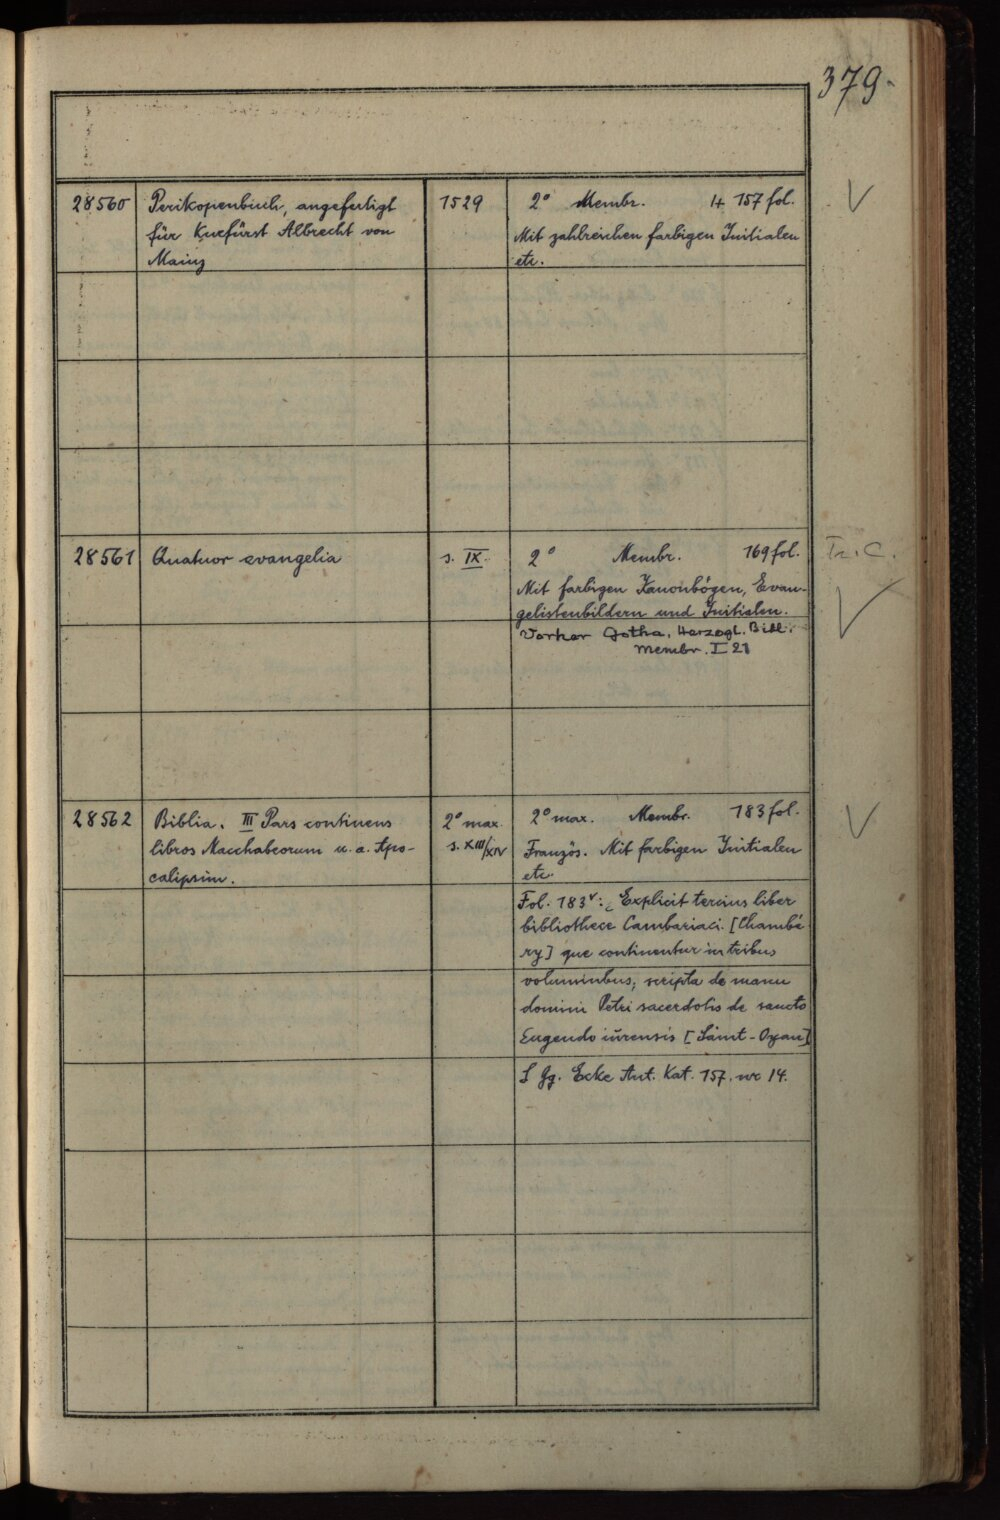 379.
28560 Perikopenbuch, angefertigt 1529 2° Membr. 4. 157 fol. V
für Kurfürst Albrecht von Mit zahlreichen farbigen Initialen
Mainz etc.
28561 Quatuor evangelia s. IX. 2° Membr. 169 fol. Tr. C.
Mit farbigen Kanonbögen, Evan-
gelistenbildern und Initialen.
Vorher Gotha, Herzogl. Bibl.
Membr. I 21
28562 Biblia. III Pars continens 2° max. 2° max. Membr. 183 fol. V
libros Macchabeorum u. a. Apo- s. XIII/XIV Französ. Mit farbigen Initialen
calipsim. etc.
Fol. 183v: Explicit tercius liber
bibliothece Cambariaci. [Chambé
ry] que continentur in tribus
voluminbus, scripta de manu
domini Petri sacerdotis de sancto
Eugendo iurensis [Saint-Oyan]
S Gg. Ecke Ant. Kat. 157. nr 14.